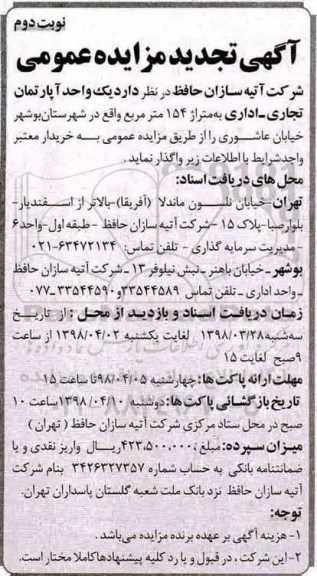 نوبت دوم
آگهی تجدید مزایده عمومی
شرکت آتیه سازان حافظ در نظر دارد یک واحد آپارتمان
تجاری ـ اداری به‌متراژ ۱۵۴ متر مربع واقع در شهرستان‌بوشهر
خیابان عاشوری را از طریق مزایده عمومی به خریدار معتبر
واجدشرایط با اطلاعات زیر واگذار نماید.
محل های دریافت اسناد:
تهران-خیابان نلسون ماندلا (آفریقا)-بالاتر از اسفندیار-
بلوارصبا-پلاک ۱۵-شرکت آتیه سازان حافظ - طبقه اول-واحد۶
-مدیریت سرمایه گذاری - تلفن تماس: ۶۳۴۷۲۱۳۴-۰۲۱
بوشهر ـ خیابان باهنر ـ نبش نیلوفر ۱۳ ـ شرکت آتیه سازان حافظ
ـ واحد اداری ـ تلفن تماس ۳۳۵۴۴۵۸۹و۳۳۵۴۴۵۹۰-۰۷۷
زمان دریافت اسناد و بازدید از محل : از تاریخ
سه‌شنبه۱۳۹۸/۰۳/۲۸ لغایت یکشنبه ۱۳۹۸/۰۴/۰۲ از ساعت
۹صبح لغایت ۱۵
مهلت ارائه پاکت ها: چهارشنبه ۹۸/۰۴/۰۵تا ساعت ۱۵
تاریخ بازگشائی پاکت ها: دوشنبه ۱۳۹۸/۰۴/۱۰ساعت ۱۰
صبح در محل ستاد مرکزی شرکت آتیه سازان حافظ (تهران)
میزان سپرده: مبلغ ۴۲۳,۵۰۰,۰۰۰ریال واریز نقدی و یا
ضمانتنامه بانکی به حساب شماره ۳۴۲۶۳۲۷۳۵۷ بنام شرکت
آتیه سازان حافظ نزد بانک ملت شعبه گلستان پاسداران تهران.
توجه:
۱- هزینه آگهی بر عهده برنده مزایده می‌باشد.
۲-این شرکت ، در قبول و یا رد کلیه پیشنهادهاکاملا مختار است.